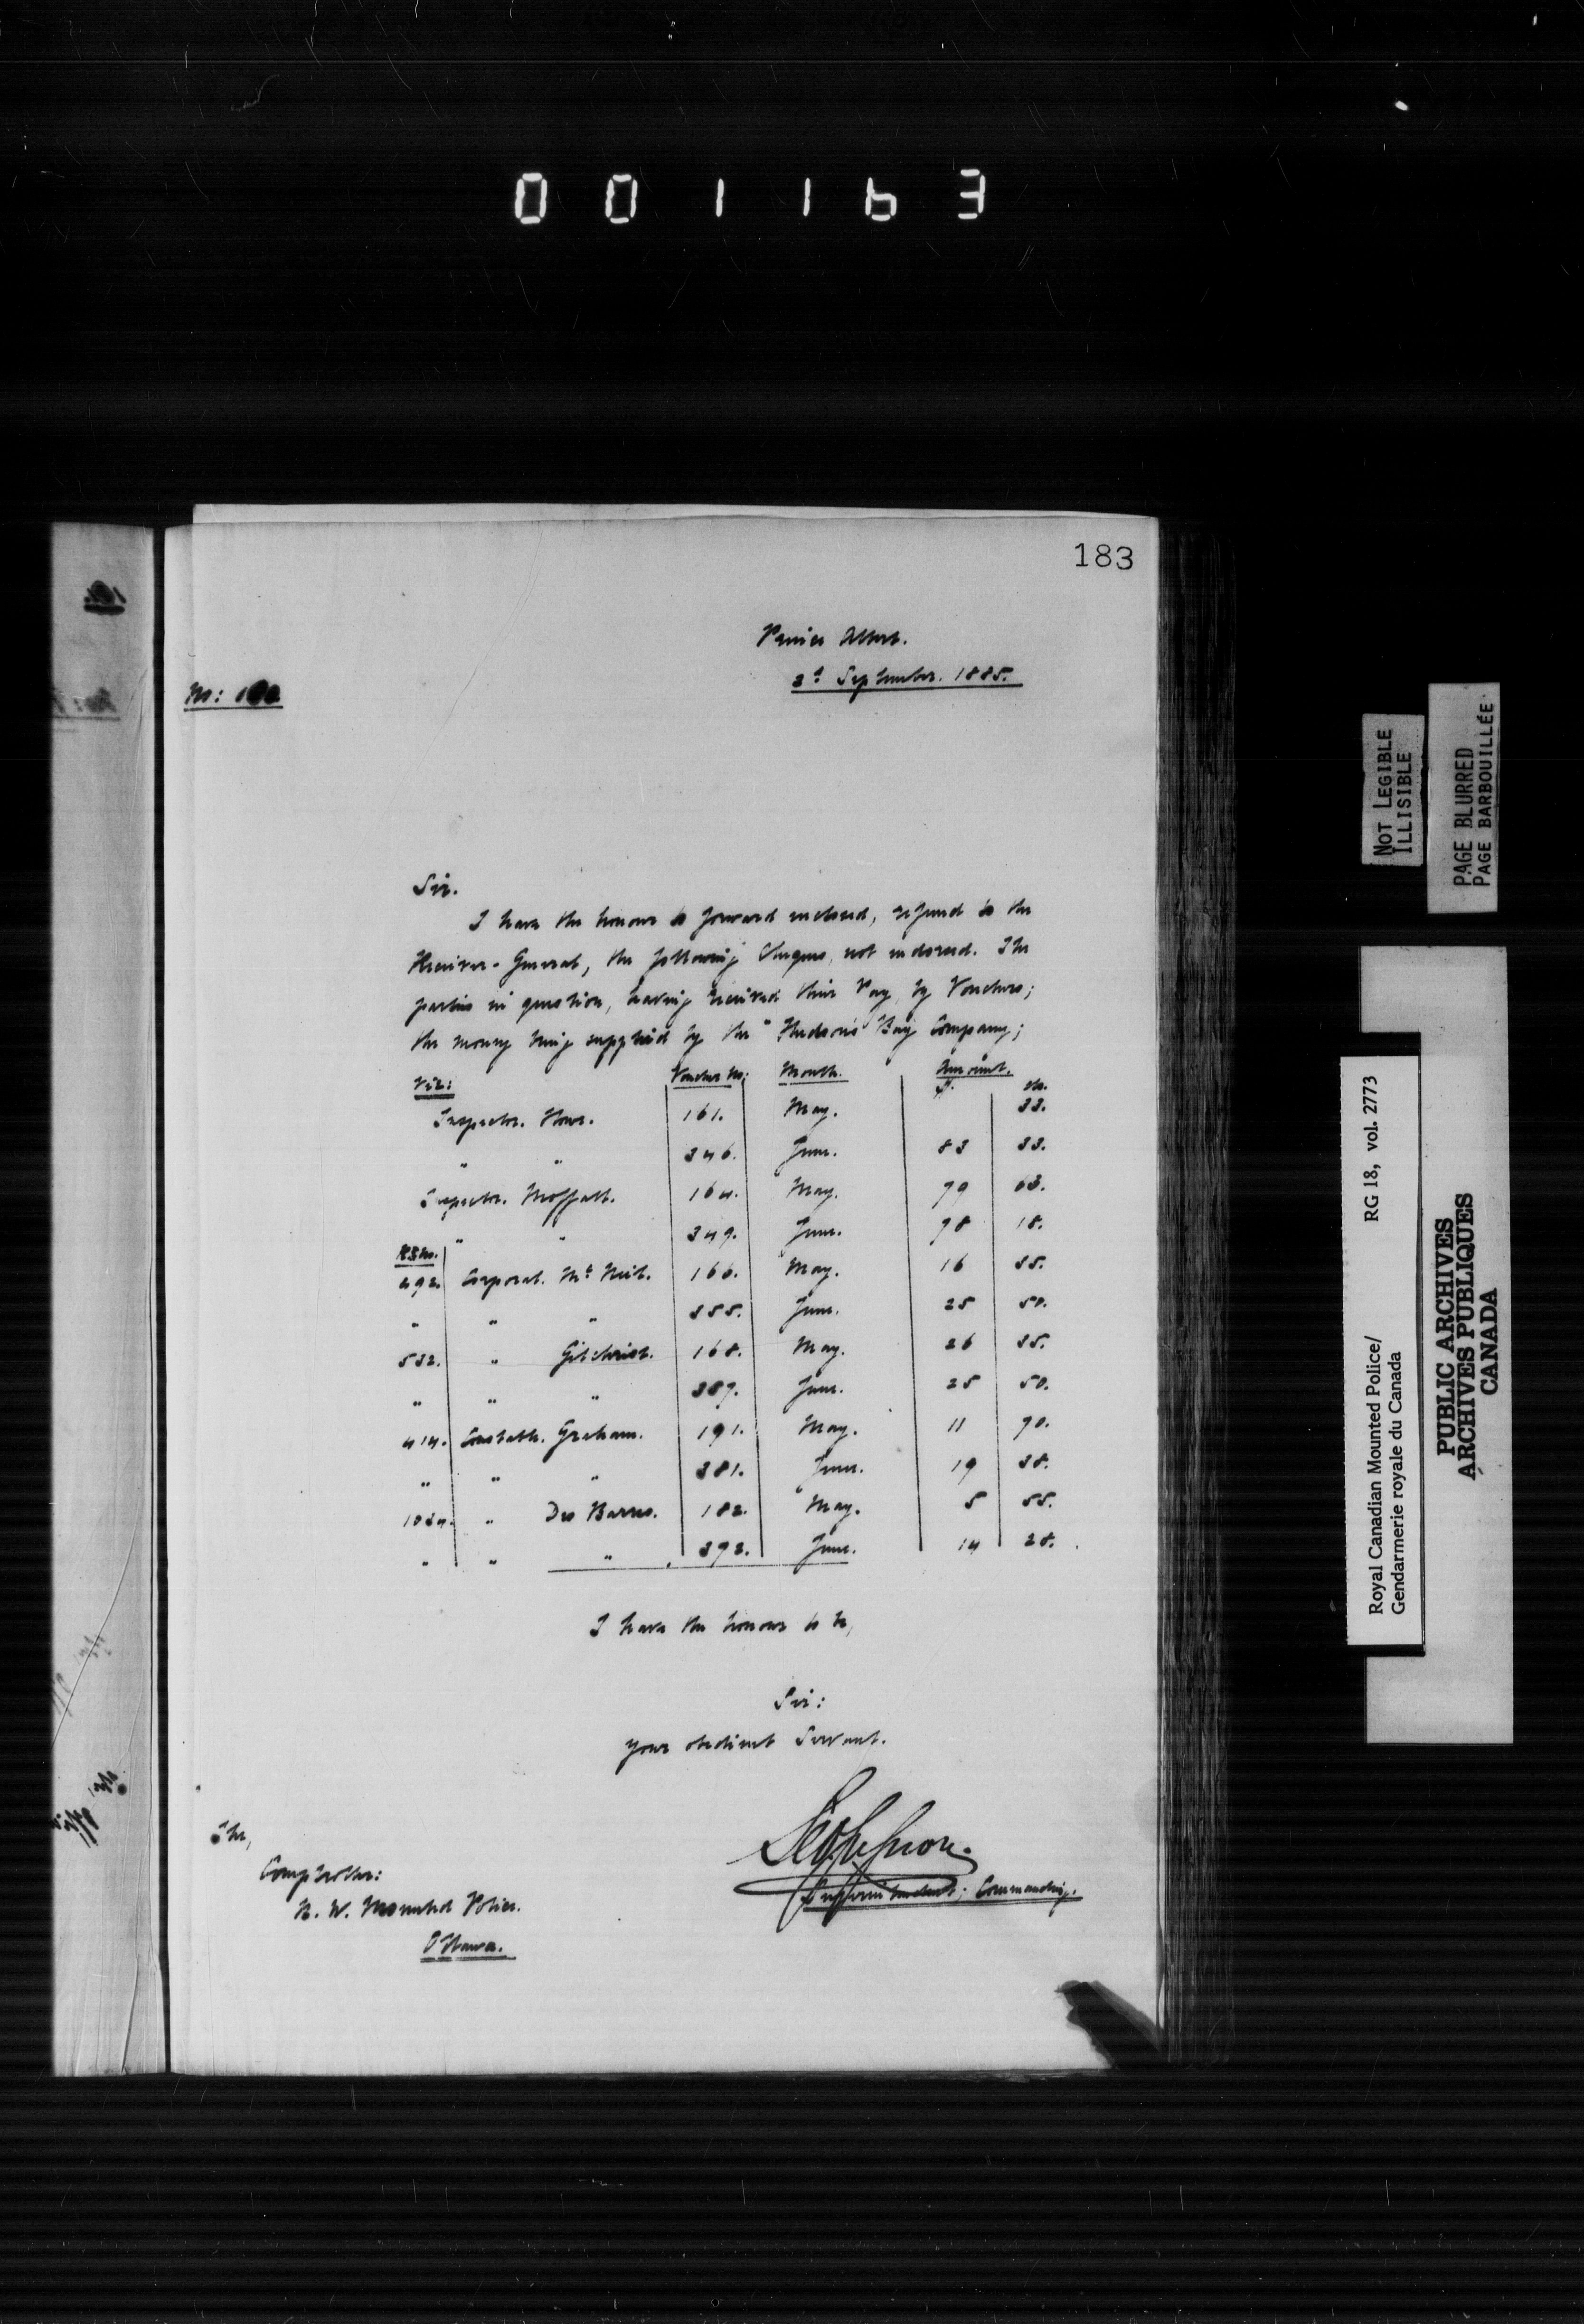 001163
183
Prince Albert.
3d September. 1885.
No:
Sir.
I have the honour to forward enclosed, refund to the
Receiver-General, the following Cheques, not endorsed. The
parties in question, having received their Pay, by Vouchers;
the money being supplied by the "Hudson's Bay Company;
viz: Voucher No: Month. Amount.
$. cts.
Inspector. Howe. 161. May. 33.
" " 346. June. 83 33.
Inspector. Moffatt. 164. May. 79 63.
" " 349. June. 78 18.
492. Corporal. McNeil. 166. May. 16 35.
" " " 355. June. 25 50.
532. " Gilchrist. 168. May. 26 35.
" " " 387. June. 25 50.
414. Constable. Graham. 191. May. 11 70.
" " " 381. June. 19 38.
1034. " Des Barres. 182. May. 5 55.
" " " 393. June. 14 28.
I have the honour to be,
Sir:
Your obedient Servant.
Superintendent; Commanding.
The,
Comptroller:
N. W. Mounted Police.
Ottawa.
NOT LEGIBLE
ILLISIBLE
PAGE BLURRED
PAGE BARBOUILLÉE
Royal Canadian Mounted Police/ RG 18, vol. 2773
Gendarmerie royale du Canada
PUBLIC ARCHIVES
ARCHIVES PUBLIQUES
CANADA